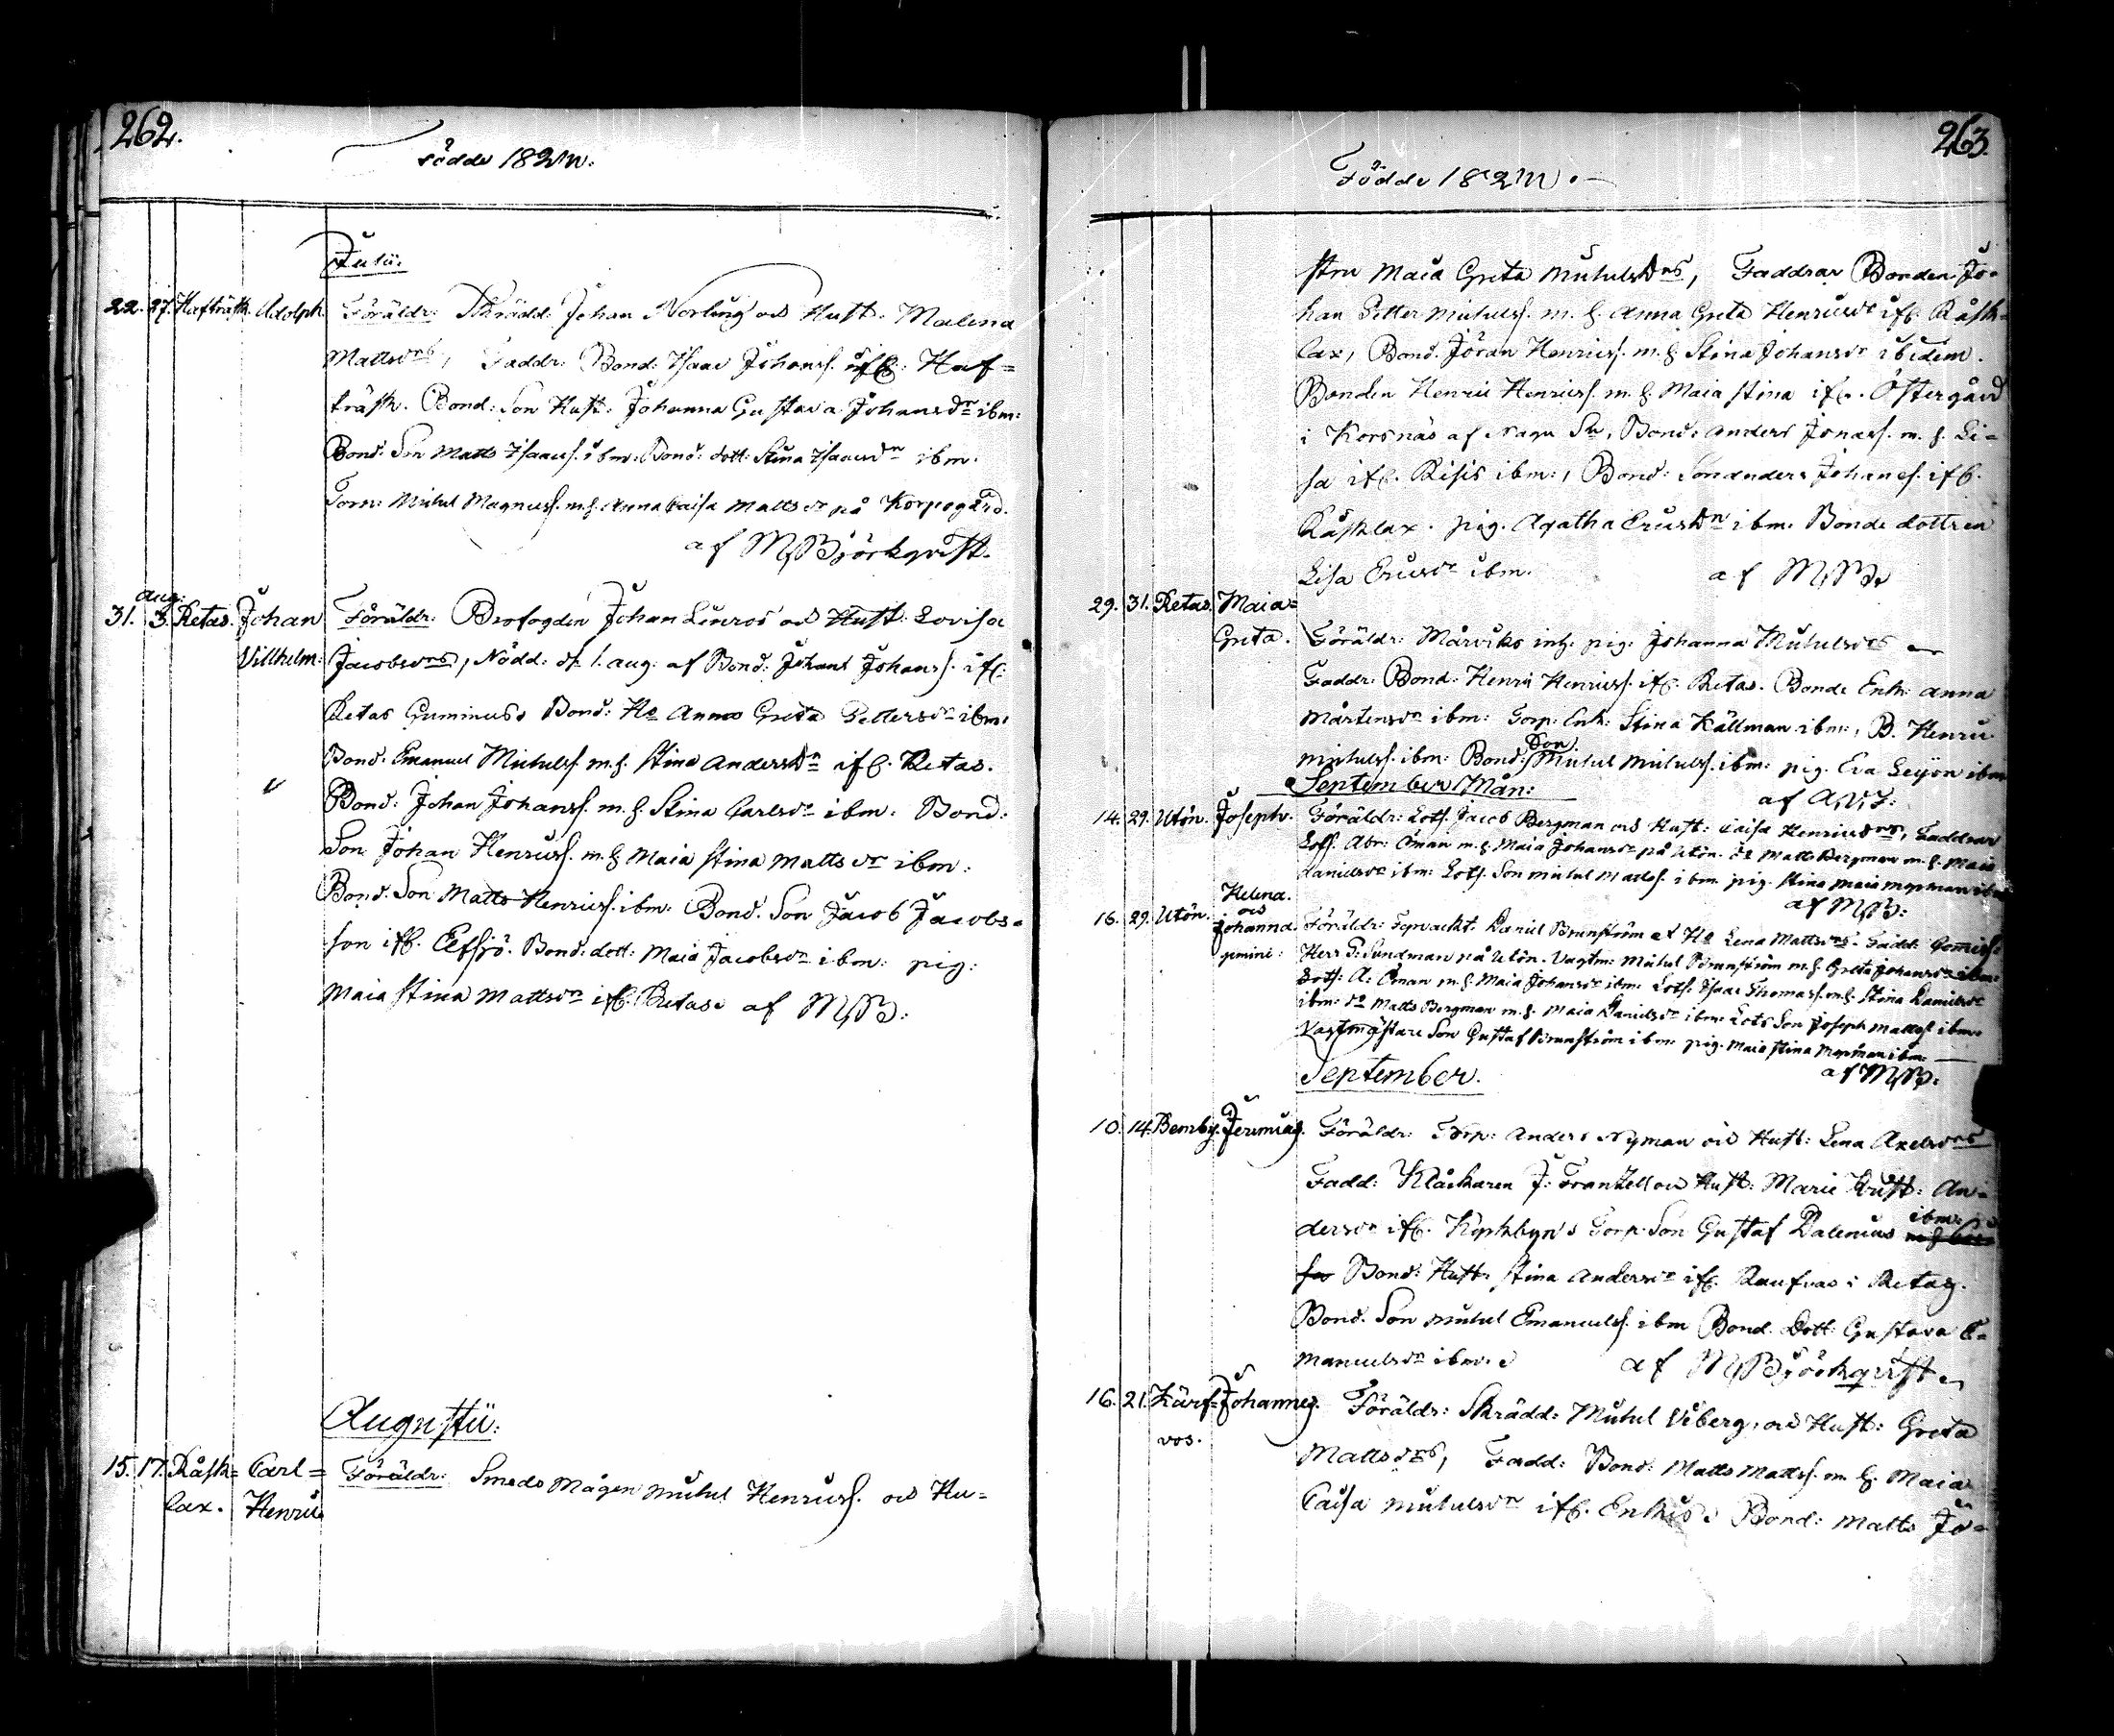 262.
Födde 182
Julii.
22. 27. Hafträsk. Adolph. Föräldr: Skrädd: Johan Norling och Hust. Malena
Mattsdr, Faddr: Bond: Isaac Johans. ifr. Haf=
träsk. Bond: Son Hust: Johanna Gustava Johansdr ibm:
Bond. Son Matts Isaacs. ibm. Bond: dott: Stina Isaacsdr ibm.
Torp: Michel Magnuss. m. h. Anna Caisa Mattsdr på Korpogård.
af M. Björkqvist.
Aug:
31. 3. Retas. Johan Föräldr: Brofogden Johan Linros och Hust: Lovisa
Villhelm: Jacobsdr, Nödd: d. 1. aug: af Bond: Johan Johans. ifr.
Retas Bond: Ho Anna Greta Pettersdr ibm:
Bond. Emanuel Michels. m. h. Stina Andersdr ifr. Retas.
Bond: Johan Johans. m. h. Stina Carlsdr ibm: Bond:
Son Johan Henrics. m. h. Maia Stina Mattsdr ibm:
Bond. Son Matts Henrics. ibm: Bond. Son Jacob Jacobs=
son ifr. Elfsjö. Bond: dott: Maia Jacobsdr ibm: pig:
Maia Stina Mattsdr ifr. Retas. af M. B:
Augustii:
15. 17. Råsk= Carl= Föräldr: Smeds Mågen Michel Henrics. och Hu=
lax. Henric
263.
Födde 182
stru Maia Greta Michelsdr, Faddrar Bonden Jo=
han Petter Michels. m. h. Anna Greta Henricsdr ifr. Råsk=
lax, Bond. Jöran Henrics. m. h. Stina Johansdr ibidem.
Bonden Henric Henrics. m. h. Maia Stina ifr. Östergård
i Korsnäs af Nagu Sn, Bond: Anders Jonas. m. h. Li=
sa ifr. Risis ibm:, Bond: Son Anders Johans. ifr.
Råsklax. pig. Agatha Ericsdr ibm. Bonde dottren
Lisa Ericsdr ibm. af M. B.
29. 31. Retas. Maia=
Greta. Föräldr: Mårviks inh. pig. Johanna Michelsdr
Faddr: Bond. Henric Henrics. ifr. Retas. Bonde Enk: Anna
Mårtensdr ibm: Torp: Enk: Stina Källman ibm:, B. Henric
Michels. ibm: Bond: Son Michel Michels. ibm: pig. Eva Leijon ibm
September Mån: af
14. 29. Utön. Joseph. Föräldr: Lots. Jacob Bergman och Hust: Caisa Henricsdr, Faddrar
Lots. Abr: Öman m. h. Maia Johansdr på Utön. do Matts Bergman m. h. Maia
Danielsdr ibm: Lots. Son Michel Matts. ibm. pig. Stina Maia ibm
af M. B:
16. 29. Utön. Helena och Johanna gemini: Föräldr: Daniel Brunström et Ho Lena Mattsdr. Fadd:
Herr G. Sundman på Utön. Vagtm: Michel Brunström m. h. Greta Johansdr ibm:
Lots: A: Öman m. h. Maia Johansdr ibm: Lots. Isaac Thomas. m. h. Stina Danielsdr
ibm: do Matts Bergman m. h. Maia Danielsdr ibm: Lots Son Joseph Matts. ibm.
Vagtmästare Son Gustaf Brunström ibm: pig. Maia Stina ibm.
September. af M. B.
10. 14. Bemby. Jeremias. Föräldr: Torp: Anders Nyman och Hust: Lena Axelsdr
Fadd: Klåckaren J. Frantzell och Hust: Marie Krist: An=
dersdr ifr. Kyrkbyn. Torp. Son Gustaf Dalenius ibm:
Bond: Hust. Stina Andersdr ifr. i Retas.
Bond. Son Michel Emanuels. ibm Bond. Dott: Gustava E=
manuelsdr ibm. af M. Björkqvist.
16. 21. Kärf= Johannes. Föräldr: Skrädd: Michel Viberg, och Hust: Greta
vos. Mattsdr, Fadd: Bond: Matts Matts. m. h. Maia
Caisa Michelsdr ifr. Enkis. Bond: Matts Jo=